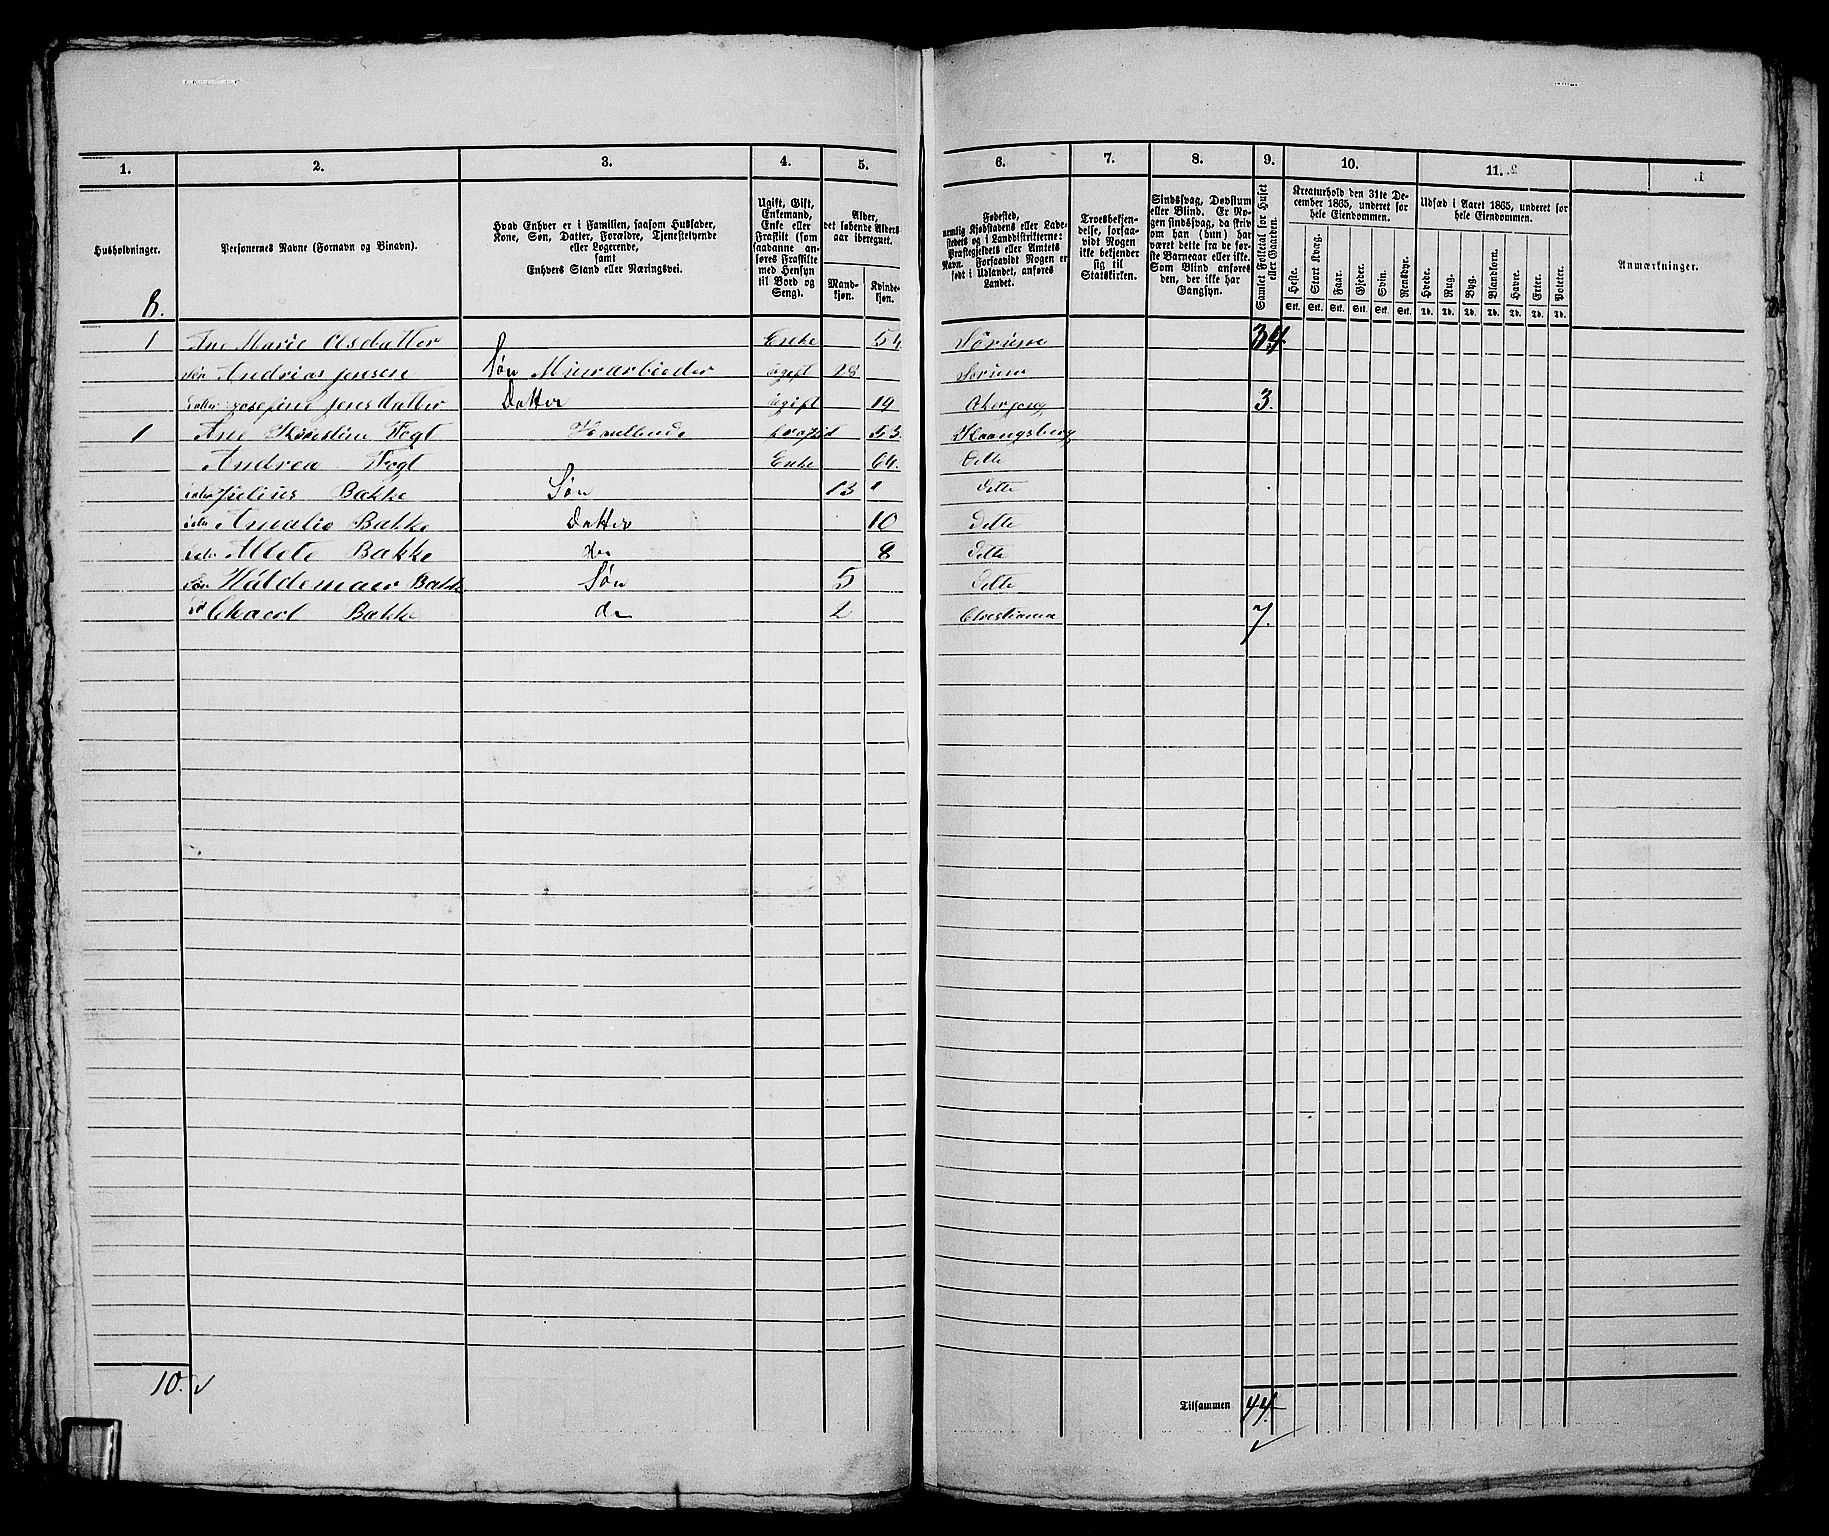 1. 2. 3. 4. 5. 6. 7. 8. 9. 10. 11.
Husholdninger.
Personernes Navne (Fornavn og Binavn).
Hvad Enhver er i Familien, saasom Husfader,
Kone, Søn, Datter, Forældre, Tjenestetyende
eller Logerende,
samt
Enhvers Stand eller Næringsvei.
Ugift, Gift,
Enkemand,
Enke eller
Fraskilt (som
saadanne an-
føres Fraskilte
med Hensyn
til Bord og
Seng).
Alder,
det løbende Alders-
aar iberegnet.
Mand-
kjøn.
Kvinde-
kjøn.
Fødested,
nemlig Kjøbstadens eller Lade-
stedets og i Landdistrikterne:
Præstegjeldets eller Amtets
Navn. Forsaavidt Nogen er
født i Udlandet, anføres
Landet.
Troesbekjen-
delse, forsaa-
vidt Nogen
ikke bekjender
sig til
Statskirken.
Sindssvag, Døvstum
eller Blind. Er No-
gen sindssvag, da skriv
om han (hun) har
været dette fra de før-
ste Barneaar eller ikke.
Som Blind anføres
den, der ikke har
Gangsyn.
Samlet Folketal for Huset
eller Gaarden.
Kreaturhold den 31te De-
cember 1865, underet for
hele Eiendommen.
Heste. Stort Kvæg. Faar. Gjeder. Svin. Rensdyr.
Stk. Stk. Stk. Stk. Stk. Stk.
Udsæd i Aaret 1865, underet for
hele Eiendommen.
Hvede. Rug. Byg. Blandkorn. Havre. Erter. Poteter.
Td. Td. Td. Td. Td. Td. Td.
Anmærkninger.
8.
1 Ane Marie Olsdatter Enke 54 Sørum 34
Søn Andrias Jensen Søn Murarbieder ugift 18 Sørum
Josefine Jensdatter Datter ugift 19 3.
1 Ane Kirestine Fogt 53. Kongsberg
Andrea Fogt Enke 64. Dette
Julius Bakke Søn 13 Dette
Amalie Bakke Datter 10 Dette
Bakke 8 Dette
Søn Valdemaer Bakke Søn 5 Dette
Bakke do 2 Christiania 7.
10.
Tilsammen 44.